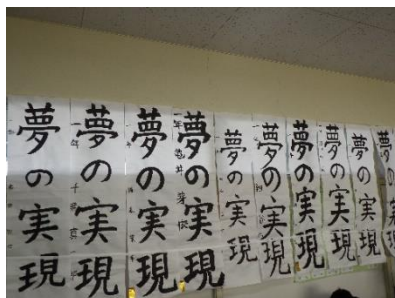 夢の実現
夢の実現
夢の実現
夢の実現
夢の実現
夢の実現
夢の実現
夢の実現
夢の実現
夢の実現
一年
一年